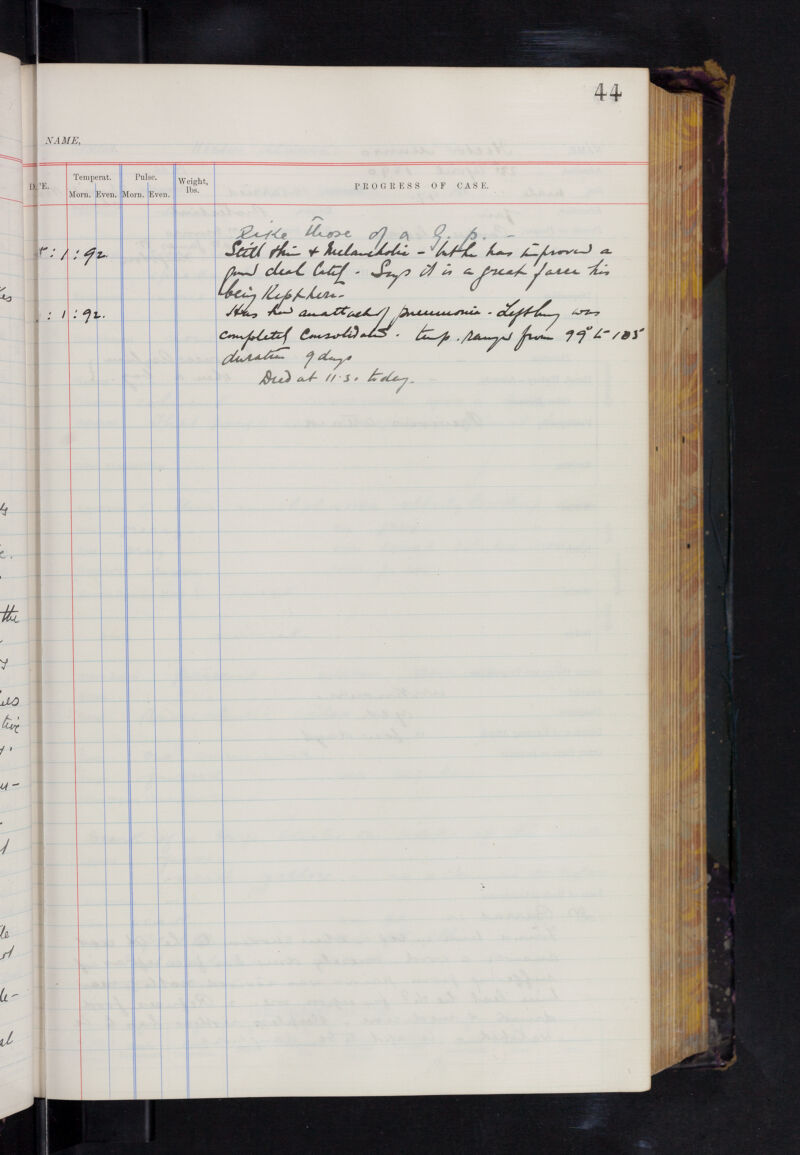 44
NAME,
Temperat. Pulse. Weight, lbs. PROGRESS OF CASE.
Morn. Even. Morn. Even.
like those of a G. p. -
: 1 : 92 Still thin & Melancholic - but he has improved a
good deal lately - Says it is a great farce his
being kept here -
: 1 : 92. Has had an attack of pneumonia - Left lung was
completely Consolidated - temp. ranged from 99° to 105
duration 9 days
Died at 11.5. today.
the